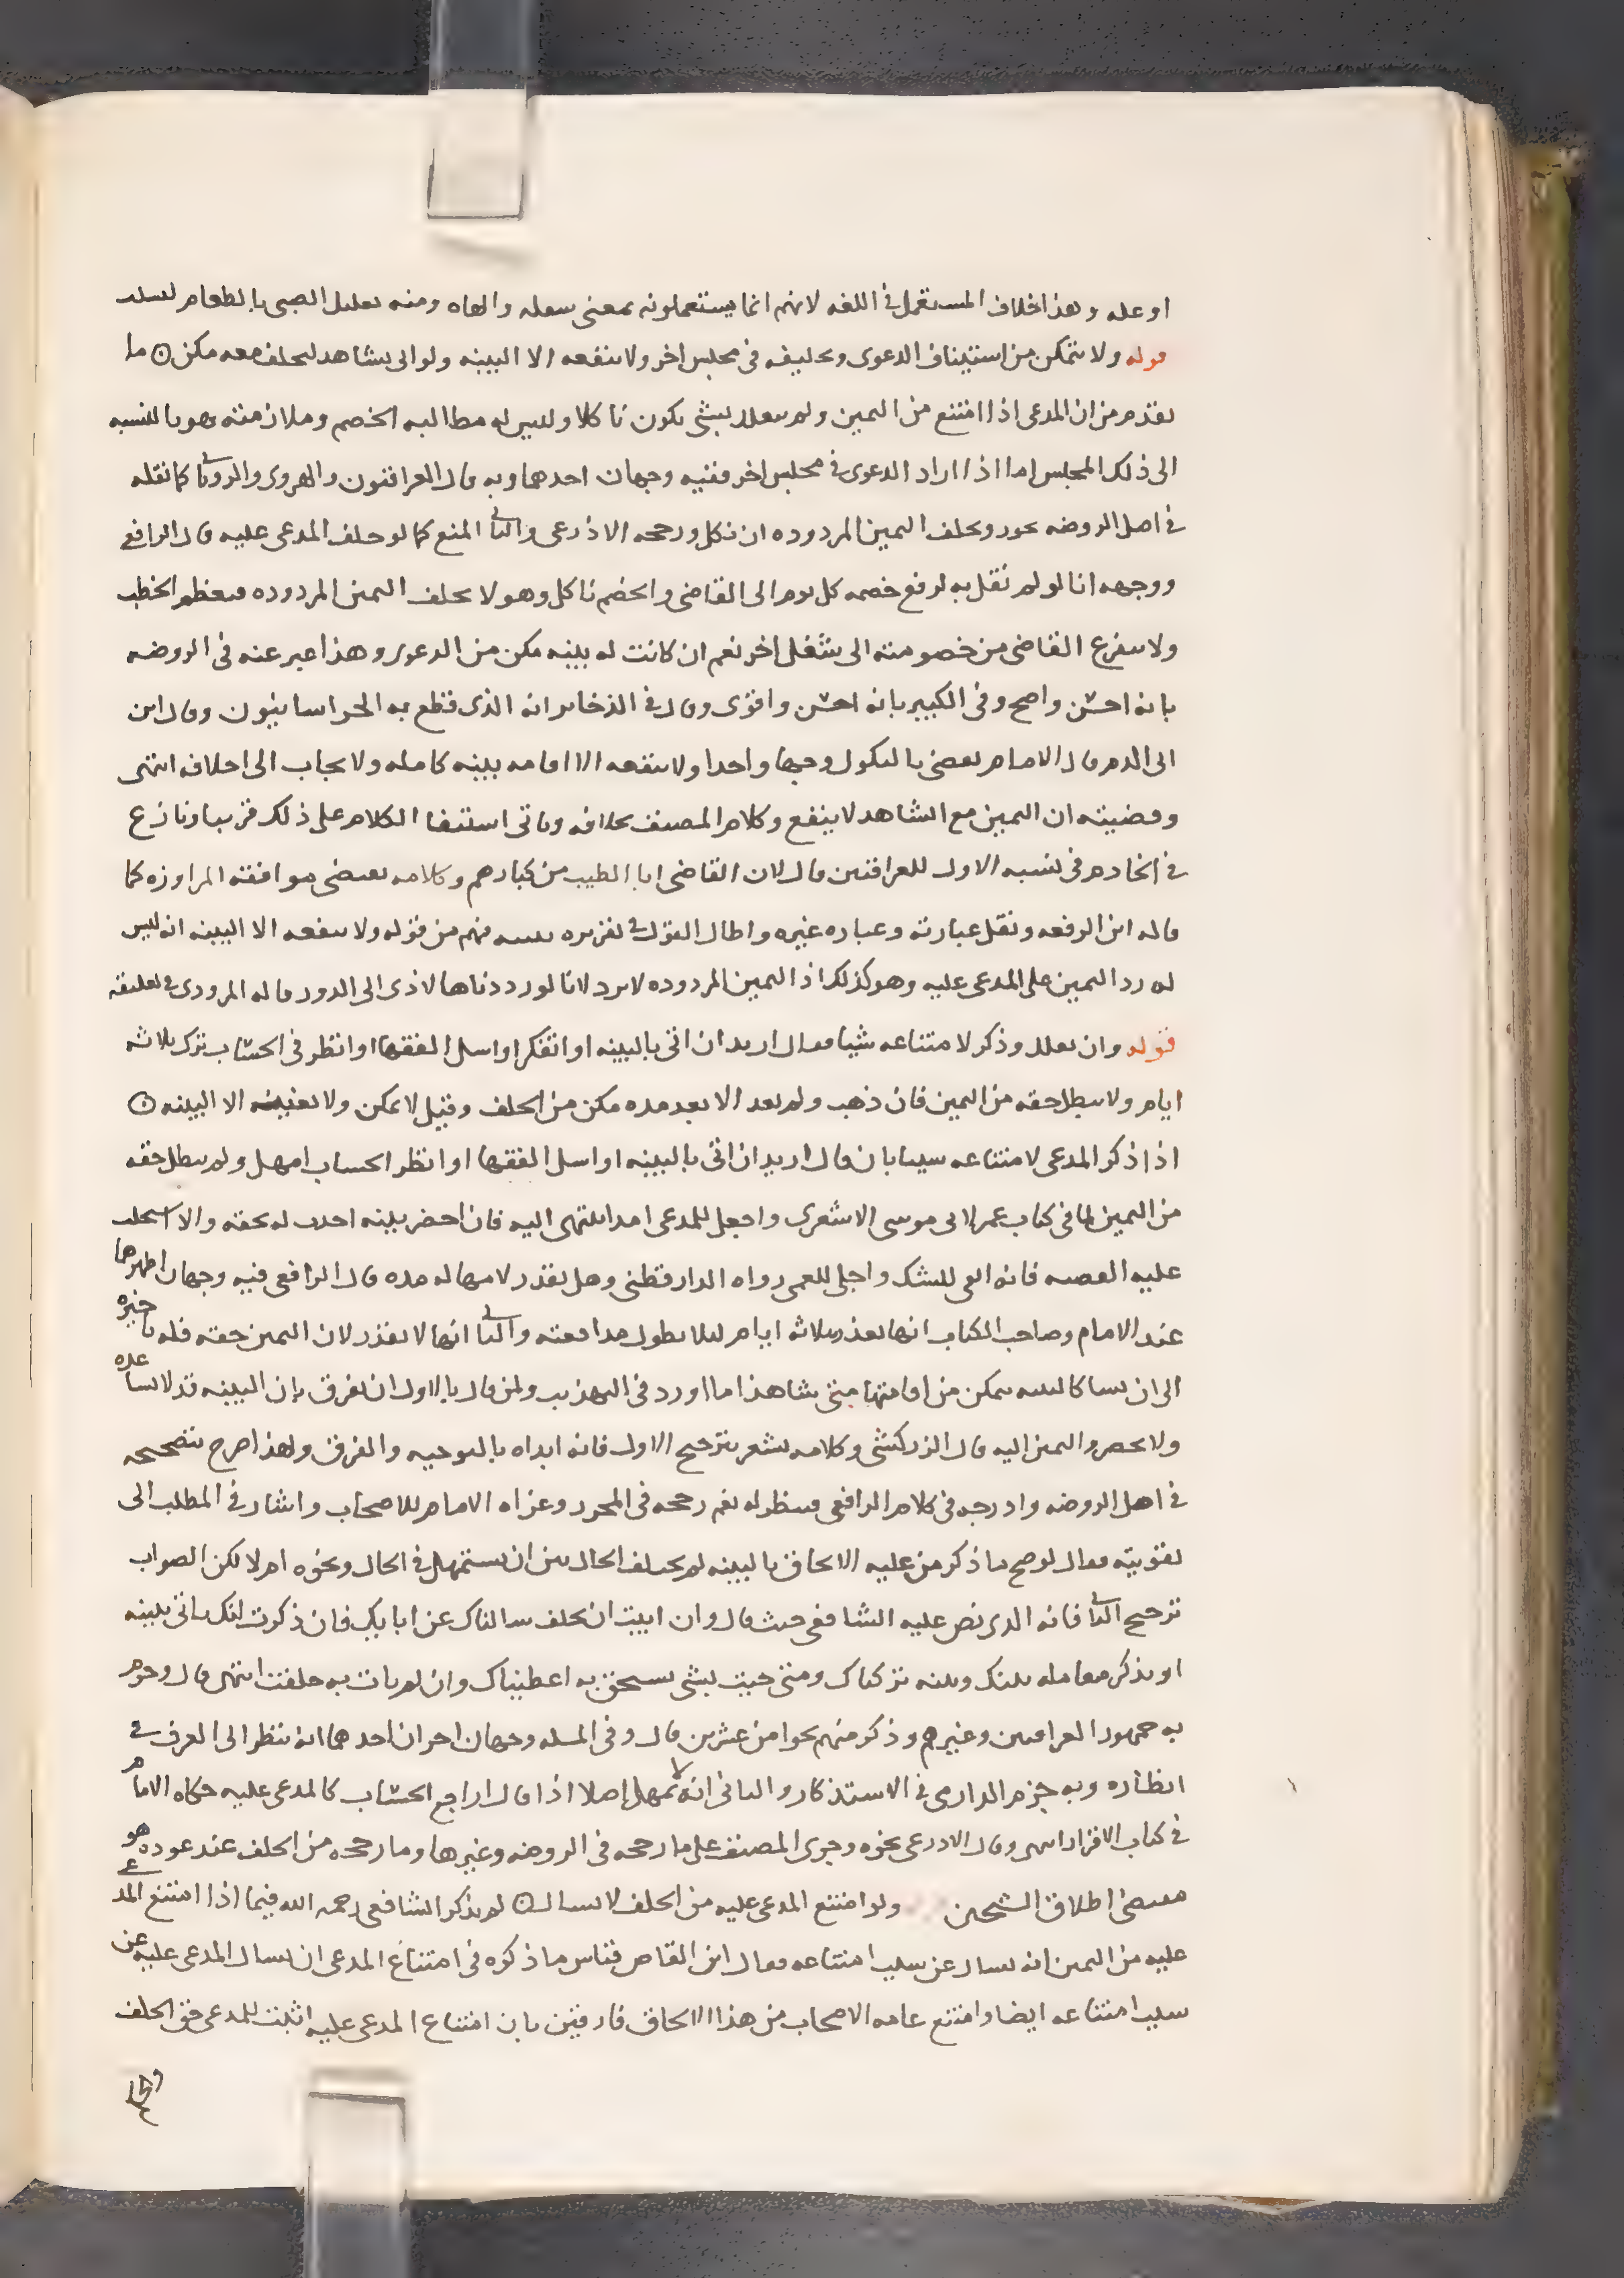 او عله وهذا خلاف المستعمل في اللغه لانهم انما يستعملونه بمعنى سعله والهاه ومنه تعليل الصبي بالطعام
قوله ولا يتمكن من استيناف الدعوى وتحليفه في مجلس اخر ولا ينفعه الا البينه ولو اتى بشاهد ليحلف معه مكن ۞ ما
تقدم من ان المدعى اذا امتنع من اليمين ولم يتعلل بشي يكون ناكلا وليس له مطالبه الخصم وملازمته هو بالنسبه
الى ذلك المجلس اما اذا اراد الدعوى في مجلس اخر ففيه وجهان احدهما وبه قال العراقيون والهروي والروياني كما نقله
في اصل الروضه يجوز ويحلف اليمين المردوده ان نكل ورجحه الاذرعي والثاني المنع كما لو حلف المدعى عليه قال الرافعي
ووجهه انا لو لم نقل به لرفع خصمه كل يوم الى القاضي والخصم ناكل وهو لا يحلف اليمين المردوده فيعظم الخطب
ولا يتفرغ القاضي من خصومته الى شغل اخر نعم ان كانت له بينه مكن من الدعوى وهذا عبر عنه في الروضه
بانه احسن واصح وفي الكبير بانه احسن واقوى وقال في الذخاير انه الذي قطع به الخراسانيون وقال ابن
ابي الدم قال الامام يقضى بالنكول وجها واحدا ولا ينفعه الا اقامه بينه كامله ولا يجاب الى احلافه انتهى
وقضيته ان اليمين مع الشاهد لا ينفع وكلام المصنف بخلافه وياتي استيفا الكلام على ذلك قريبا ونازع
في الخادم في نسبه الاول للعراقيين قال لان القاضي ابا الطيب من كبارهم وكلامه يقتضي موافقه المراوزه كما
قاله ابن الرفعه ونقل عبارته وعباره غيره واطال القول في تقريره تنبيه فهم من قوله ولا ينفعه الا البينه انه ليس
له رد اليمين على المدعى عليه وهو كذلك اذ اليمين المردوده لا ترد لانا لو رددناها لادى الى الدور قاله المرودي في تعليقه
قوله وان تعلل وذكر لامتناعه شيا فقال اريد ان اتي بالبينه او اتفكر او اسل الفقها او انظر في الحساب ترك ثلاثه
ايام ولا يبطل حقه من اليمين فان ذهب ولم يعد الا بعد مده مكن من الحلف وقيل لا يمكن ولا الا البينه ۞
اذا ذكر المدعى لامتناعه سببا بان قال اريد ان اتي بالبينه او اسل الفقها او انظر الحساب امهل ولم يبطل حقه
من اليمين لما في كتاب عمر لابي موسى الاشعري واجعل للمدعى امدا ينتهي اليه فان احضر بينه اخذت له بحقه والا استحلت
عليه القضيه فانه انفى للشك واجلى للعمى رواه الدارقطني وهل يقدر لامهاله مده قال الرافعي فيه وجهان اظهرهما
عند الامام وصاحب الكتاب انها تقدر بثلاثه ايام ليلا يطول مدافعته والثاني انها لا تقدر لان اليمين حقه فله تاخيره
الى ان يسا كالبينه يتمكن من اقامتها متى شا هذا ما اورد في التهذيب ولمن قال بالاول ان يفرق بان البينه قد لا تساعده
ولا تحضر واليمين اليه قال الزركشي وكلامه يشعر بترجيح الاول فانه ابداه بالتوجيه والفرق ولهذا صرح بتصحيحه
في اصل الروضه وادرجه في كلام الرافعي فينظر له نعم رجحه في المحرر وعزاه الامام للاصحاب واشار في المطلب الى
تقويته فقال لو صح ما ذكر من عليه الالحاق بالبينه لم يختلف الحال بين ان يستمهل في الحال ونحوه ام لا لكن الصواب
ترجيح الثاني فانه الذي نص عليه الشافعي حيث قال وان ابيت ان تحلف سالناك عن ابايك فان ذكرت انك تاتي ببينه
او تذكر معامله بينك وبينه تركناك ومتى جيت بشي تستحق به اعطيناك وان لم تات به حلفت انتهى قال وجزم
به جمهور العراقيين وغيرهم وذكر منهم نحوا من عشرين قال وفي المسله وجهان اخران احدهما انه ننظر الى العرف في
انظاره وبه جزم الدارمي في الاستذكار والثاني انه لا يمهل اصلا اذا قال اراجع الحساب كالمدعى عليه حكاه الامام
في كتاب الاقرار انتهى وقال الاذرعي نحوه وجرى المصنف على ما رجحه في الروضه وغيرها وما رجحه من الحلف عند عوده هو
مقتضى اطلاق الشيخين ولو امتنع المدعى عليه من الحلف لا يسال ۞ لم يذكر الشافعي رحمه الله فيما اذا امتنع المدعى
عليه من اليمين انه يسال عن سبب امتناعه فقال ابن القاص قياس ما ذكره في امتناع المدعى ان يسال المدعى عليه عن
سبب امتناعه ايضا وامتنع عامه الاصحاب من هذا الالحاق فارقين بان امتناع المدعى عليه اثبت للمدعى حق الحلف